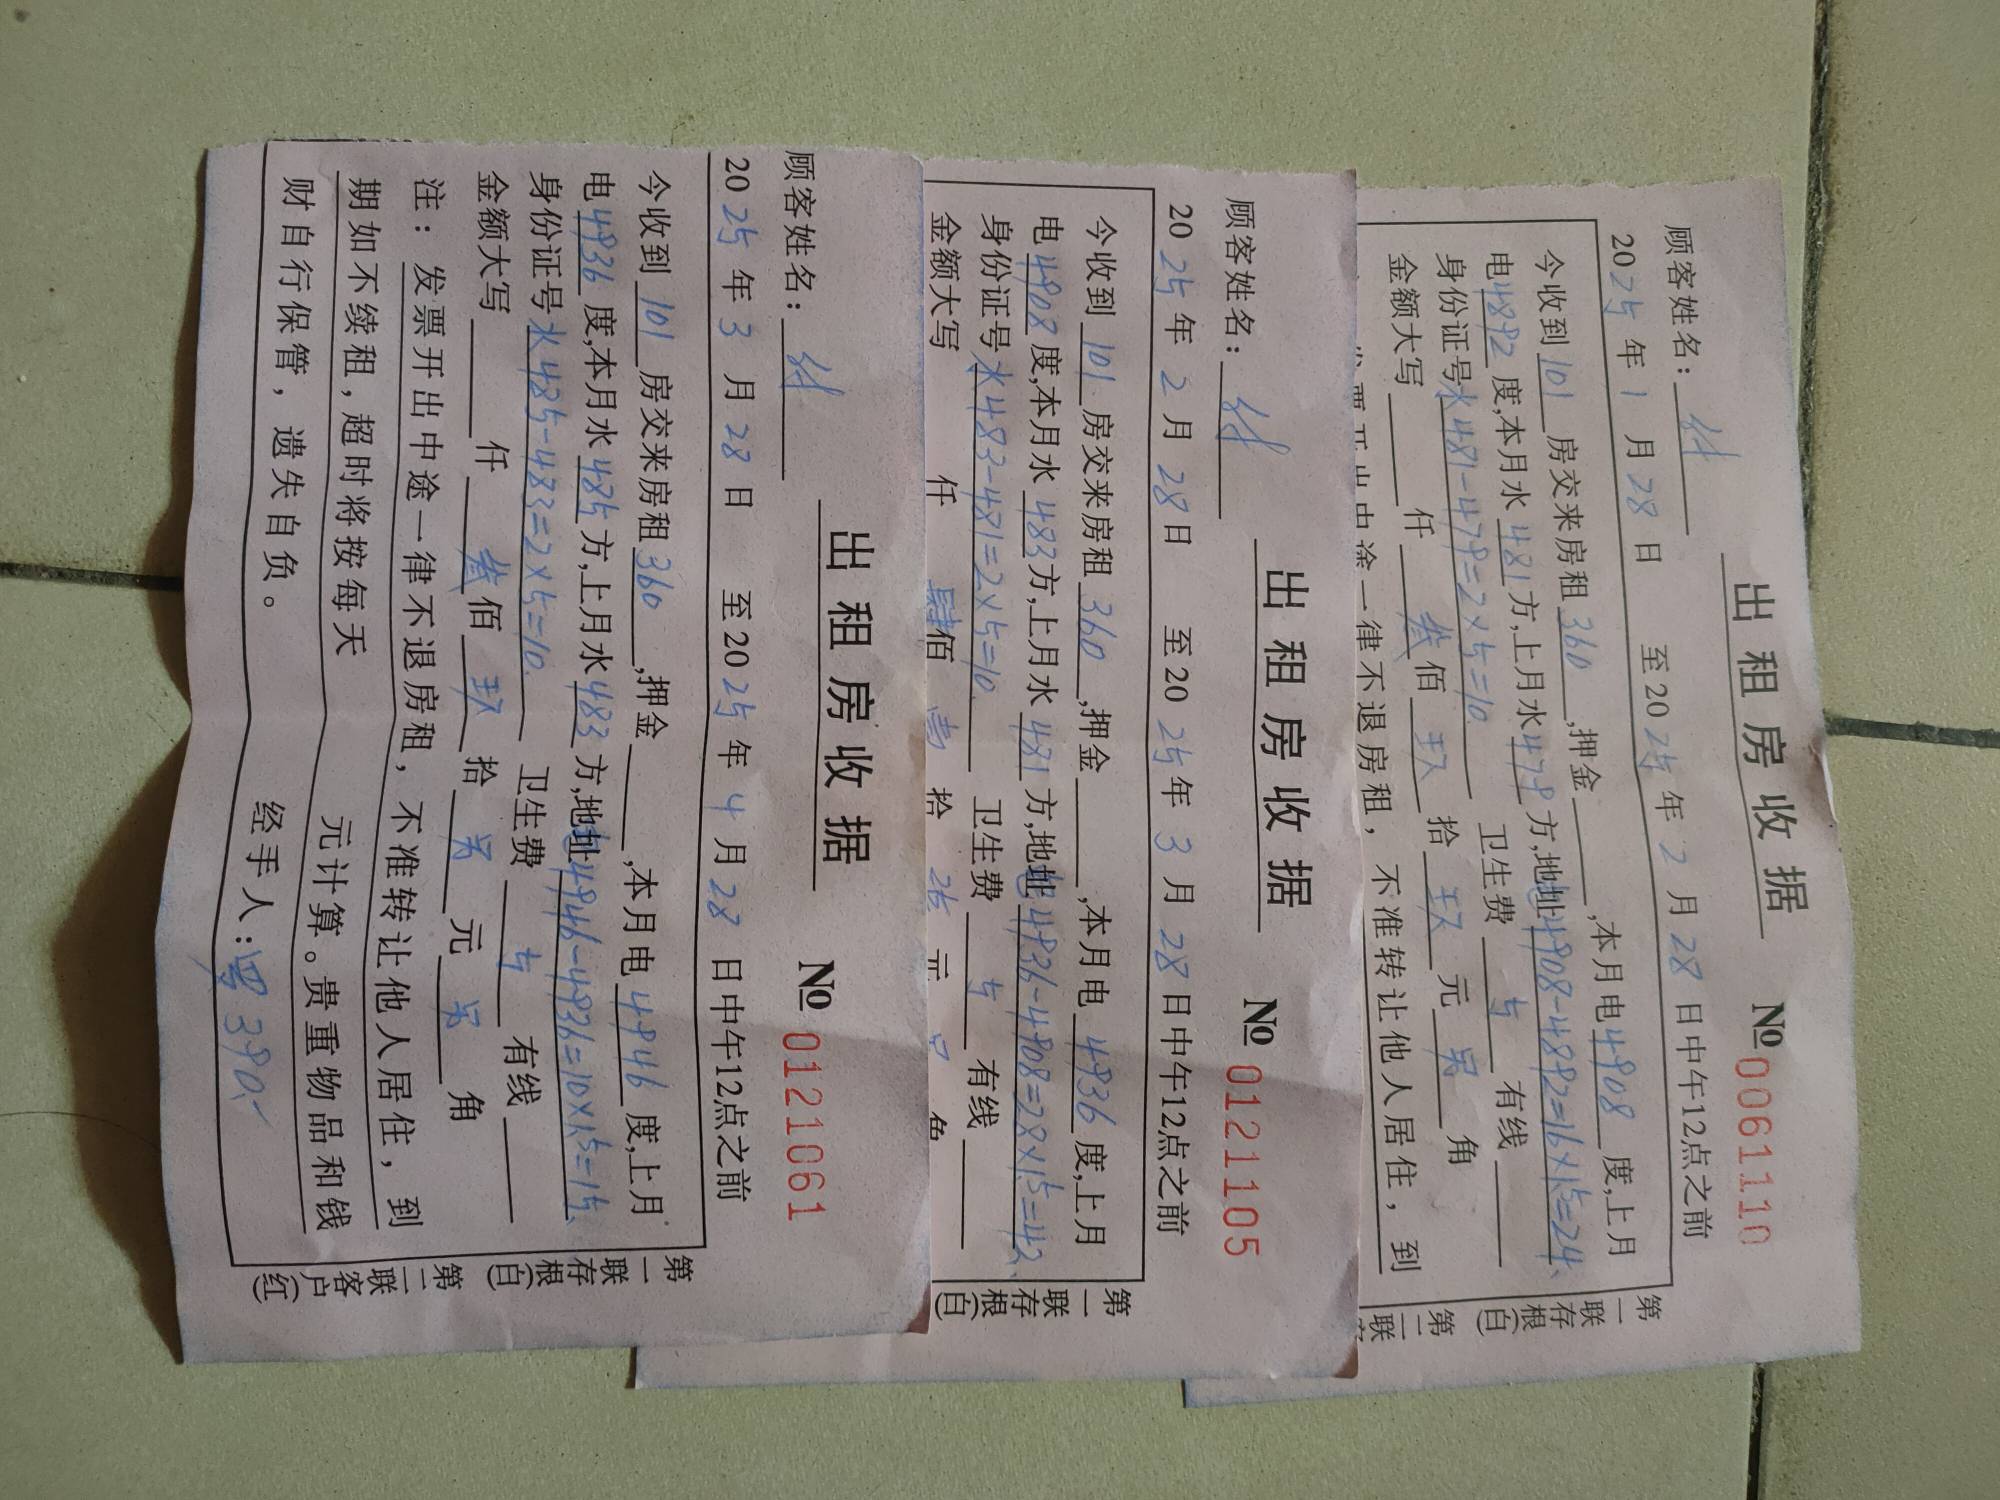 出租房收据
№ 0061110
顾客姓名：
2025年1月28日 至2025年2月28日中午12点之前
今收到101房交来房租360,押金 ,本月电4908度,上月
电4892度,本月水481方,上月水479方,地址电4908-4892=16×1.5=24.
身份证号水481-479=2×5=10. 卫生费5有线
金额大写 仟叁佰玖拾玖元 角
发票开出中途一律不退房租，不准转让他人居住，到
第一联存根(白) 第二联
出租房收据
№ 0121105
顾客姓名：
2025年2月28日 至2025年3月28日中午12点之前
今收到101房交来房租360,押金 ,本月电4936度,上月
电4908度,本月水483方,上月水481方,地址电4936-4908=28×1.5=42.
身份证号水483-481=2×5=10. 卫生费5有线
金额大写 仟肆佰壹拾 元 角
第一联存根(白)
出租房收据
№ 0121061
顾客姓名：
2025年3月28日 至2025年4月28日中午12点之前
今收到101房交来房租360,押金 ,本月电4946度,上月
电4936度,本月水485方,上月水483方,地址电4946-4936=10×1.5=15.
身份证号水485-483=2×5=10. 卫生费5有线
金额大写 仟叁佰玖拾 元 角
注：发票开出中途一律不退房租，不准转让他人居住，到
期如不续租，超时将按每天 元计算。贵重物品和钱
财自行保管，遗失自负。 经手人: 390.-
第一联存根(白) 第二联客户(红)